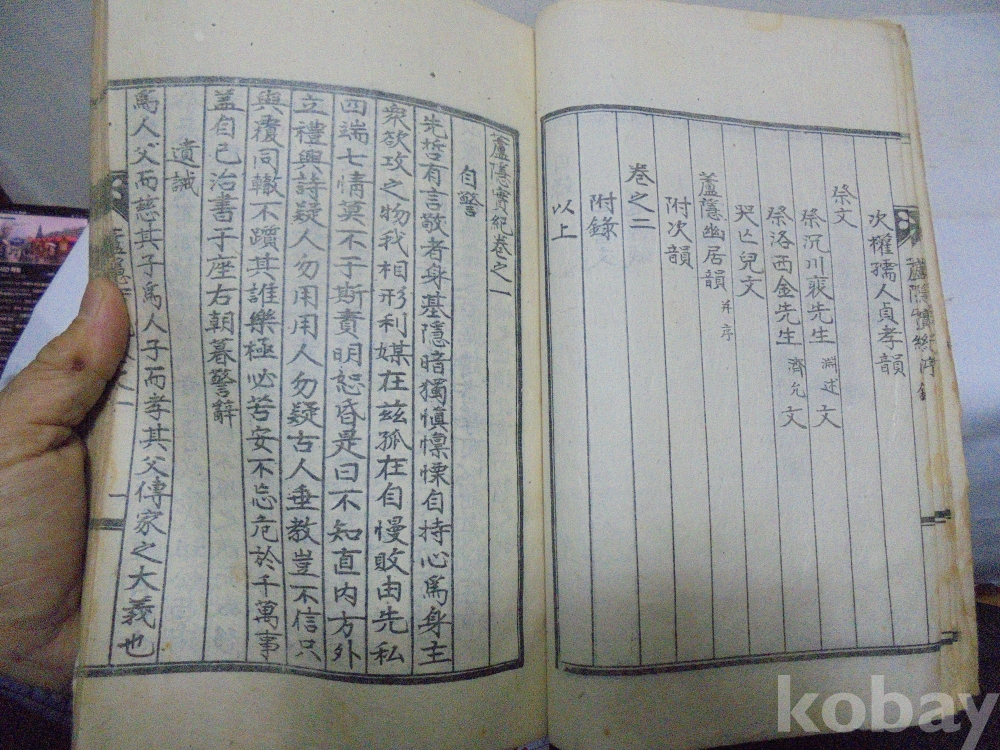 次權孺人貞孝韻
祭文
祭沉川裵先生 淵述 文
祭洛西金先生 濟允 文
哭亡兒文
蘆隱幽居韻 并序
附次韻
卷之二
附錄
以上
蘆隱實紀卷之一
自警
先哲有言敬者身基隱暗獨愼懍慄自持心爲身主
衆欲攻之物我相形利媒在玆孤在自慢敗由先私
四端七情莫不于斯責明恕昏是曰不知直內方外
立禮興詩疑人勿用用人勿疑古人垂教豈不信只
與覆同轍不躓其誰樂極必苦安不忘危於千萬事
盖自己治書于座右朝暮警辭
遺誡
爲人父而慈其子爲人子而孝其父傳家之大義也
kobay